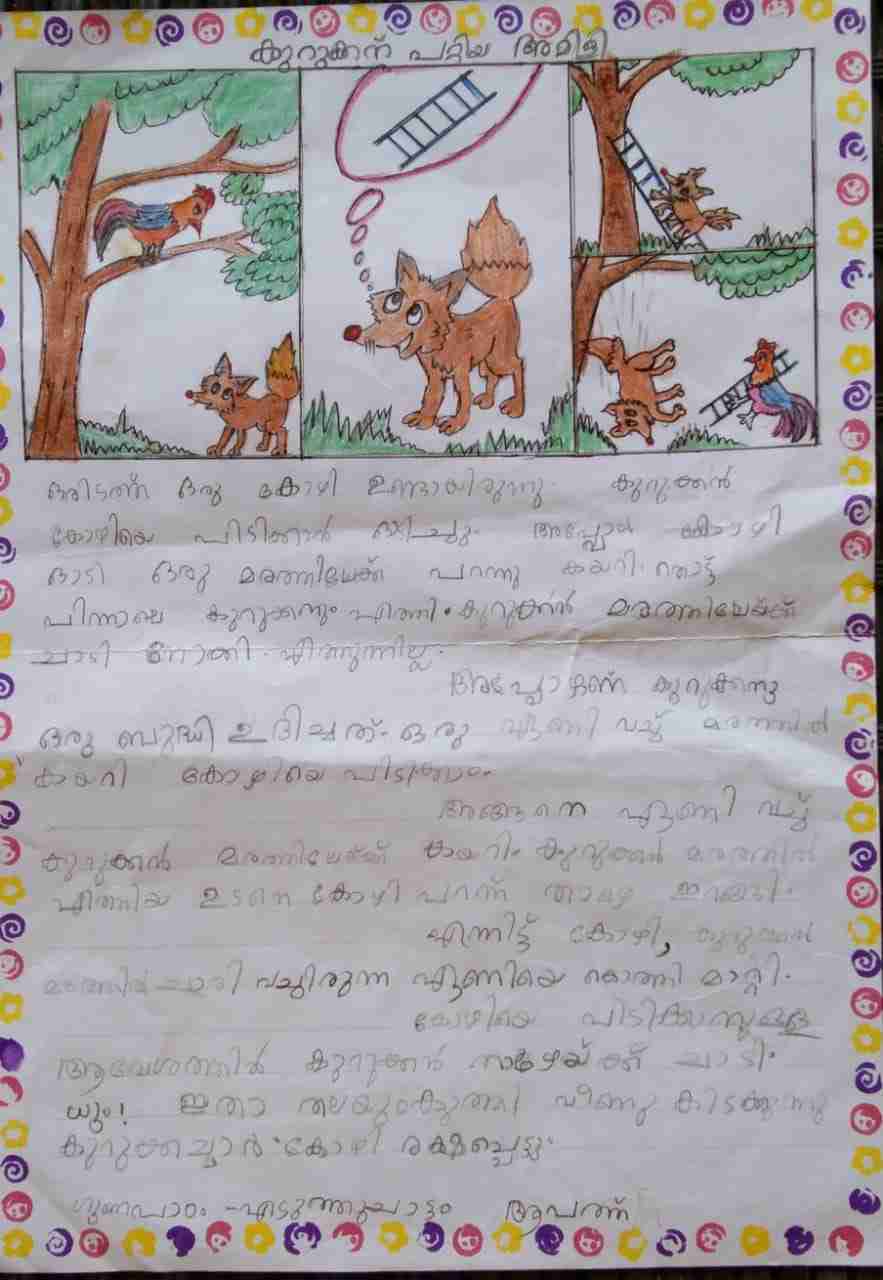 കുറുക്കന് പറ്റിയ അമിളി
ഒരിടത്ത് ഒരു കോഴി ഉണ്ടായിരുന്നു. കുറുക്കൻ
കോഴിയെ പിടിക്കാൻ ഓടിച്ചു. അപ്പോൾ കോഴി
ഓടി ഒരു മരത്തിലേക്ക് പറന്നു കയറി. തൊട്ട്
പിന്നാലെ കുറുക്കനും എത്തി. കുറുക്കൻ മരത്തിലേയ്ക്ക്
ചാടി നോക്കി. എത്തുന്നില്ല.
അപ്പോഴാണ് കുറുക്കനു
ഒരു ബുദ്ധി ഉദിച്ചത്. ഒരു ഏണി വച്ച് മരത്തിൽ
കയറി കോഴിയെ പിടിക്കാം.
അങ്ങനെ ഏണി വച്ച്
കുറുക്കൻ മരത്തിലേയ്ക്ക് കയറി. കുറുക്കൻ മരത്തിൽ
എത്തിയ ഉടനെ കോഴി പറന്ന് താഴെ ഇറങ്ങി.
എന്നിട്ട് കോഴി, കുറുക്കൻ
മരത്തിൽ ചാരി വച്ചിരുന്ന ഏണിയെ കൊത്തി മാറ്റി.
കോഴിയെ പിടിക്കാനുള്ള
ആവേശത്തിൽ കുറുക്കൻ താഴേയ്ക്ക് ചാടി.
ധും! ഇതാ തലയുംകുത്തി വീണു കിടക്കുന്നു
കുറുക്കച്ചാർ. കോഴി രക്ഷപ്പെട്ടു.
ഗുണപാഠം - എടുത്തുചാട്ടം ആപത്ത്